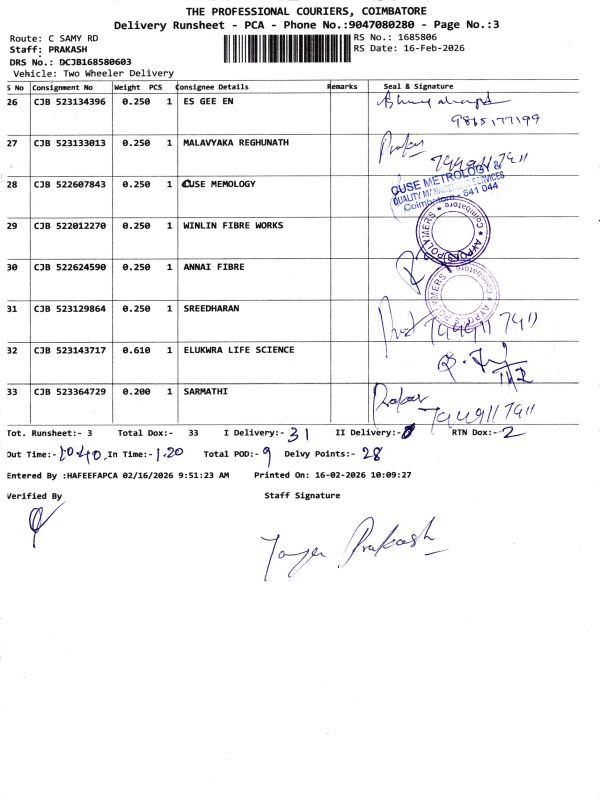 THE PROFESSIONAL COURIERS, COIMBATORE
Delivery Runsheet - PCA - Phone No.:9047080280 - Page No.:3
Route: C SAMY RD RS No.: 1685806
Staff: PRAKASH RS Date: 16-Feb-2026
DRS No.: DCJB168580603
Vehicle: Two Wheeler Delivery
S No Consignment No Weight PCS Consignee Details Remarks Seal & Signature
26 CJB 523134396 0.250 1 ES GEE EN
9865177199
27 CJB 523133013 0.250 1 MALAVYAKA REGHUNATH
28 CJB 522607843 0.250 1 CUSE MEMOLOGY CUSE METROLOGY &
QUALITY MANAGEMENT SERVICES
Coimbatore - 641 044
29 CJB 522012270 0.250 1 WINLIN FIBRE WORKS AYPOLS POLYMERS ★ Coimbatore ★
30 CJB 522624590 0.250 1 ANNAI FIBRE AYPOLS POLYMERS ★ Coimbatore ★
31 CJB 523129864 0.250 1 SREEDHARAN
32 CJB 523143717 0.610 1 ELUKWRA LIFE SCIENCE
33 CJB 523364729 0.200 1 SARMATHI
Tot. Runsheet:- 3 Total Dox:- 33 I Delivery:- 31 II Delivery:- RTN Dox:- 2
Out Time:- 10.40 In Time:- 1.20 Total POD:- 9 Delvy Points:- 28
Entered By :HAFEEFAPCA 02/16/2026 9:51:23 AM Printed On: 16-02-2026 10:09:27
Verified By Staff Signature
Prakash